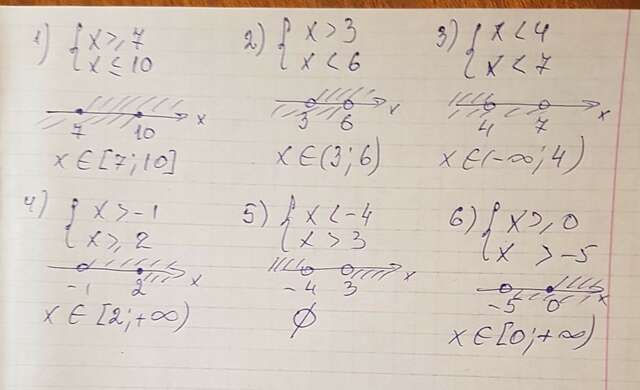 1) { x ≥ 7
x ≤ 10
7 10 x
x ∈ [7; 10]
2) { x > 3
x < 6
3 6 x
x ∈ (3; 6)
3) { x < 4
x < 7
4 7 x
x ∈ (-∞; 4)
4) { x > -1
x ≥ 2
-1 2 x
x ∈ [2; +∞)
5) { x < -4
x > 3
-4 3 x
∅
6) { x ≥ 0
x > -5
-5 0 x
x ∈ [0; +∞)